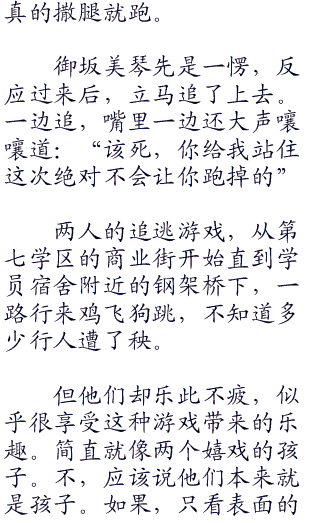 真的撒腿就跑。
御坂美琴先是一愣，反
应过来后，立马追了上去。
一边追，嘴里一边还大声嚷
嚷道：“该死，你给我站住
这次绝对不会让你跑掉的”
两人的追逃游戏，从第
七学区的商业街开始直到学
员宿舍附近的钢架桥下，一
路行来鸡飞狗跳，不知道多
少行人遭了秧。
但他们却乐此不疲，似
乎很享受这种游戏带来的乐
趣。简直就像两个嬉戏的孩
子。不，应该说他们本来就
是孩子。如果，只看表面的